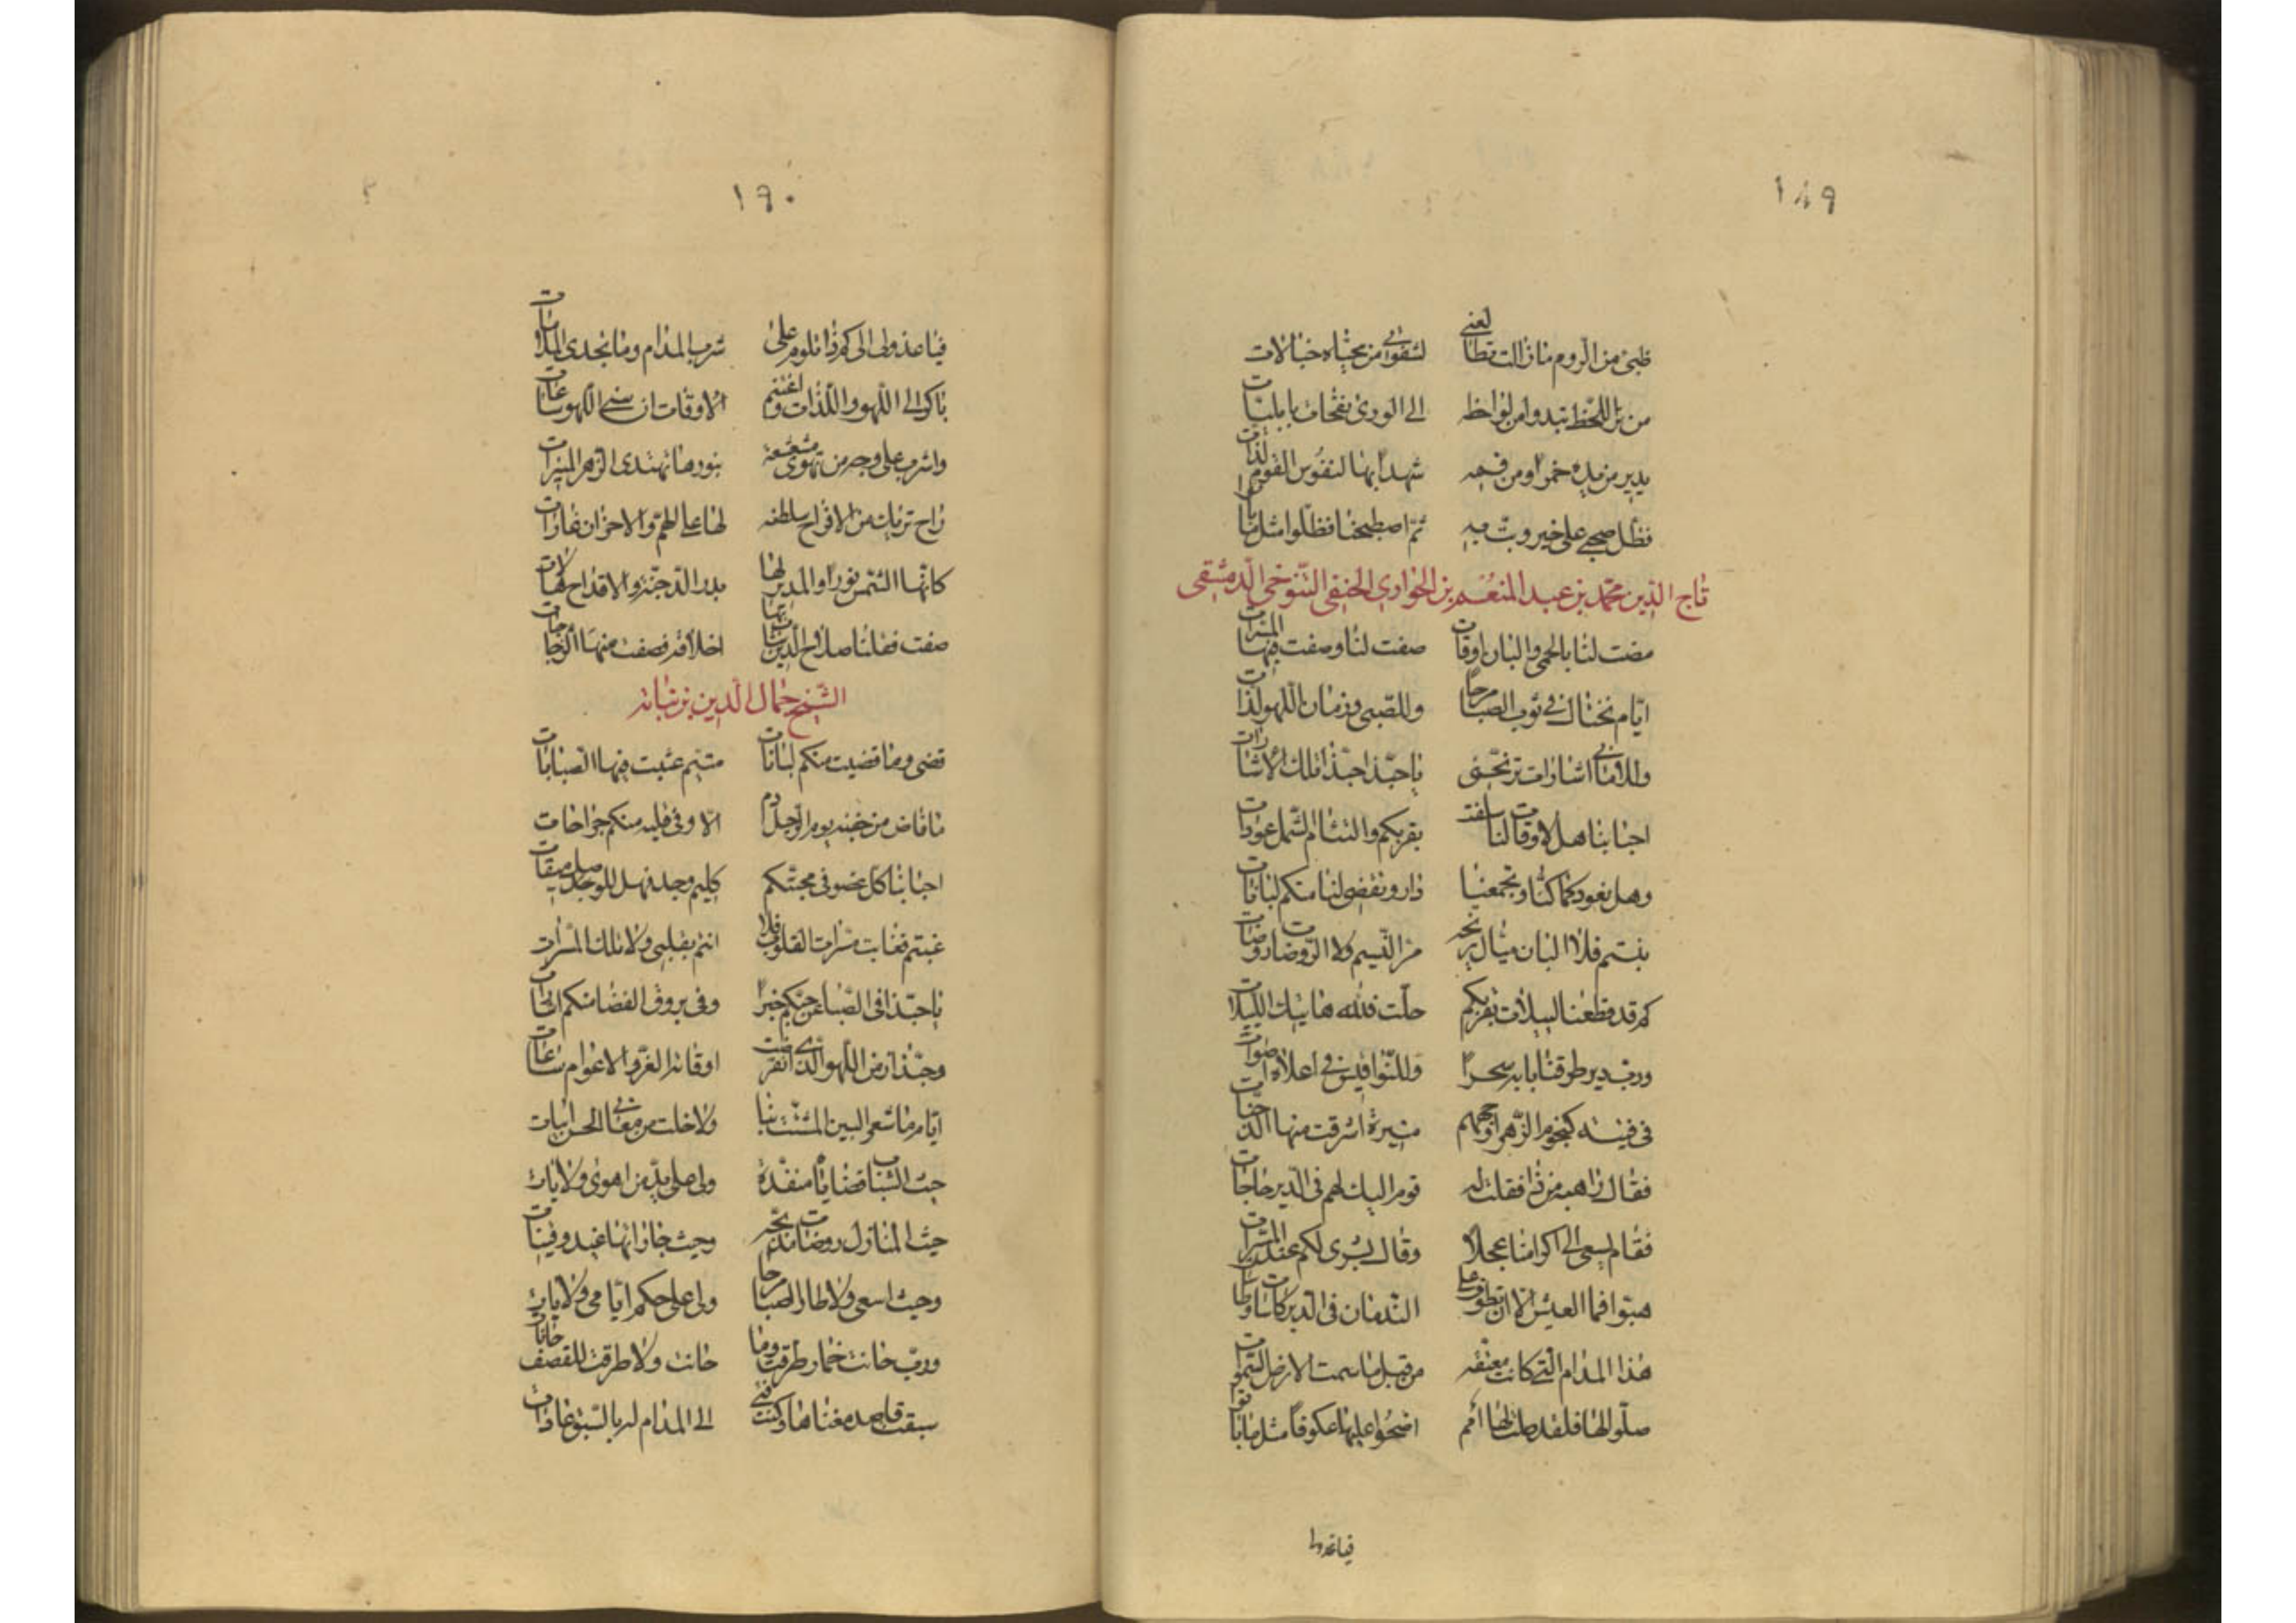 ١٨٩
ظبى من الروم مازالت تطالعنى لشقوتى من محياه خيالات
من بر اللحظ تبدوا من لواحظه الى الورى نفحات بابليات
يدير من يده خمرا ومن فمه شهدا بها لنفوس القوم لذات
فظل صحبى على خير وبت به ثم اصطبحنا فظلوا مثل ما باتوا
تاج الدين محمد بن عبد المنعم بن الحوارى الحنفى التنوخى الدمشقى
مضت لنا بالحمى والبان اوقات صفت لنا وصفت فيها المسرات
ايام نختال فى ثوب الصبا مرحا وللصبى وزمان اللهو لذات
وللامانى اشارات ترنحنى يا حبذا حبذا تلك الاشارات
احبابنا هل لاوقات لنا سلفت بقربكم والتئام الشمل عودات
وهل نعود كما كنا وتجمعنا دار وتقضى لنا منكم لبانات
بنتم فلا البان ميال يرنحه مر النسيم ولا الروضات روضات
كم قد قطعنا لييلات بقربكم حلت فلله هاتيك اللييلات
ورب دير طرقنا بابه سحرا وللنواقيس فى اعلاه اصوات
فى فتية كنجوم الزهر اوجههم منيرة اشرقت منها الدجنات
فقال راهبه من ذا فقلت له قوم اليك لهم فى الدير حاجات
فقام يسعى الى اكرامنا عجلا وقال بشرى لكم عندى المسرات
هبوا فما العيش الا ان تطوف على الندمان فى الدير كاسات وطاسات
هذا المدام التى كانت معتقة من قبل ما سمت الارض السموات
صلوا لها فلقد صلت لها امم اضحوا عليها عكوفا مثل ما باتوا
فياعذولى
١٩٠
فيا عذولى الى كم ذا تلوم على شرب المدام وما تجدى الملامات
باكر الى اللهو واللذات واغتنم الاوقات ان سنى اللهو ساعات
واشرب على وجه من تهوى مشعشعة بنورها تهتدى الزهر المنيرات
راح تريك من الافراح سلطنة لها على الهم والاحزان غارات
كانها الشمس نورا والمدير لها بدر الدجنة والاقداح هالات
صفت فقلنا صلاح الدين شابهها اخلاقه فصفت منها الزجاجات
الشيخ جمال الدين بن نباته
قضى وما قضيت منكم لبانات متيم عبثت فيها الصبابات
ما فاض من جفنه يوم الرحيل دم الا وفى قلبه منكم جراحات
احبابنا كل عضو فى محبتكم كليم وجد فهل للوصل ميقات
غبتم فغابت مسرات القلوب فلا انتم بقلبى ولا تلك المسرات
يا حبذا فى الصبا عن حيكم خبرا وفى بروق الفضا منكم اشارات
وحبذا زمن اللهو الذى انقرضت اوقاته الغر والاعوام ساعات
ايام ما شعر البين المشت بنا ولا خلت من مغانى الحسن ابيات
حيث الشباب قضاياه منفذة ولى على يد من اهوى ولايات
حيث المنازل روضات مدبجة وحيث جاراتها غيد وفتيات
وحيث اسعى ولاطار الصبا مرحا ولى على حكم ايامى ولايات
ورب حانت خمار طرقت وما حانت ولا طرقت للقصف حانات
سبقت قاصد مغناها وكنت فتى الى المدام له بالسبق عادات